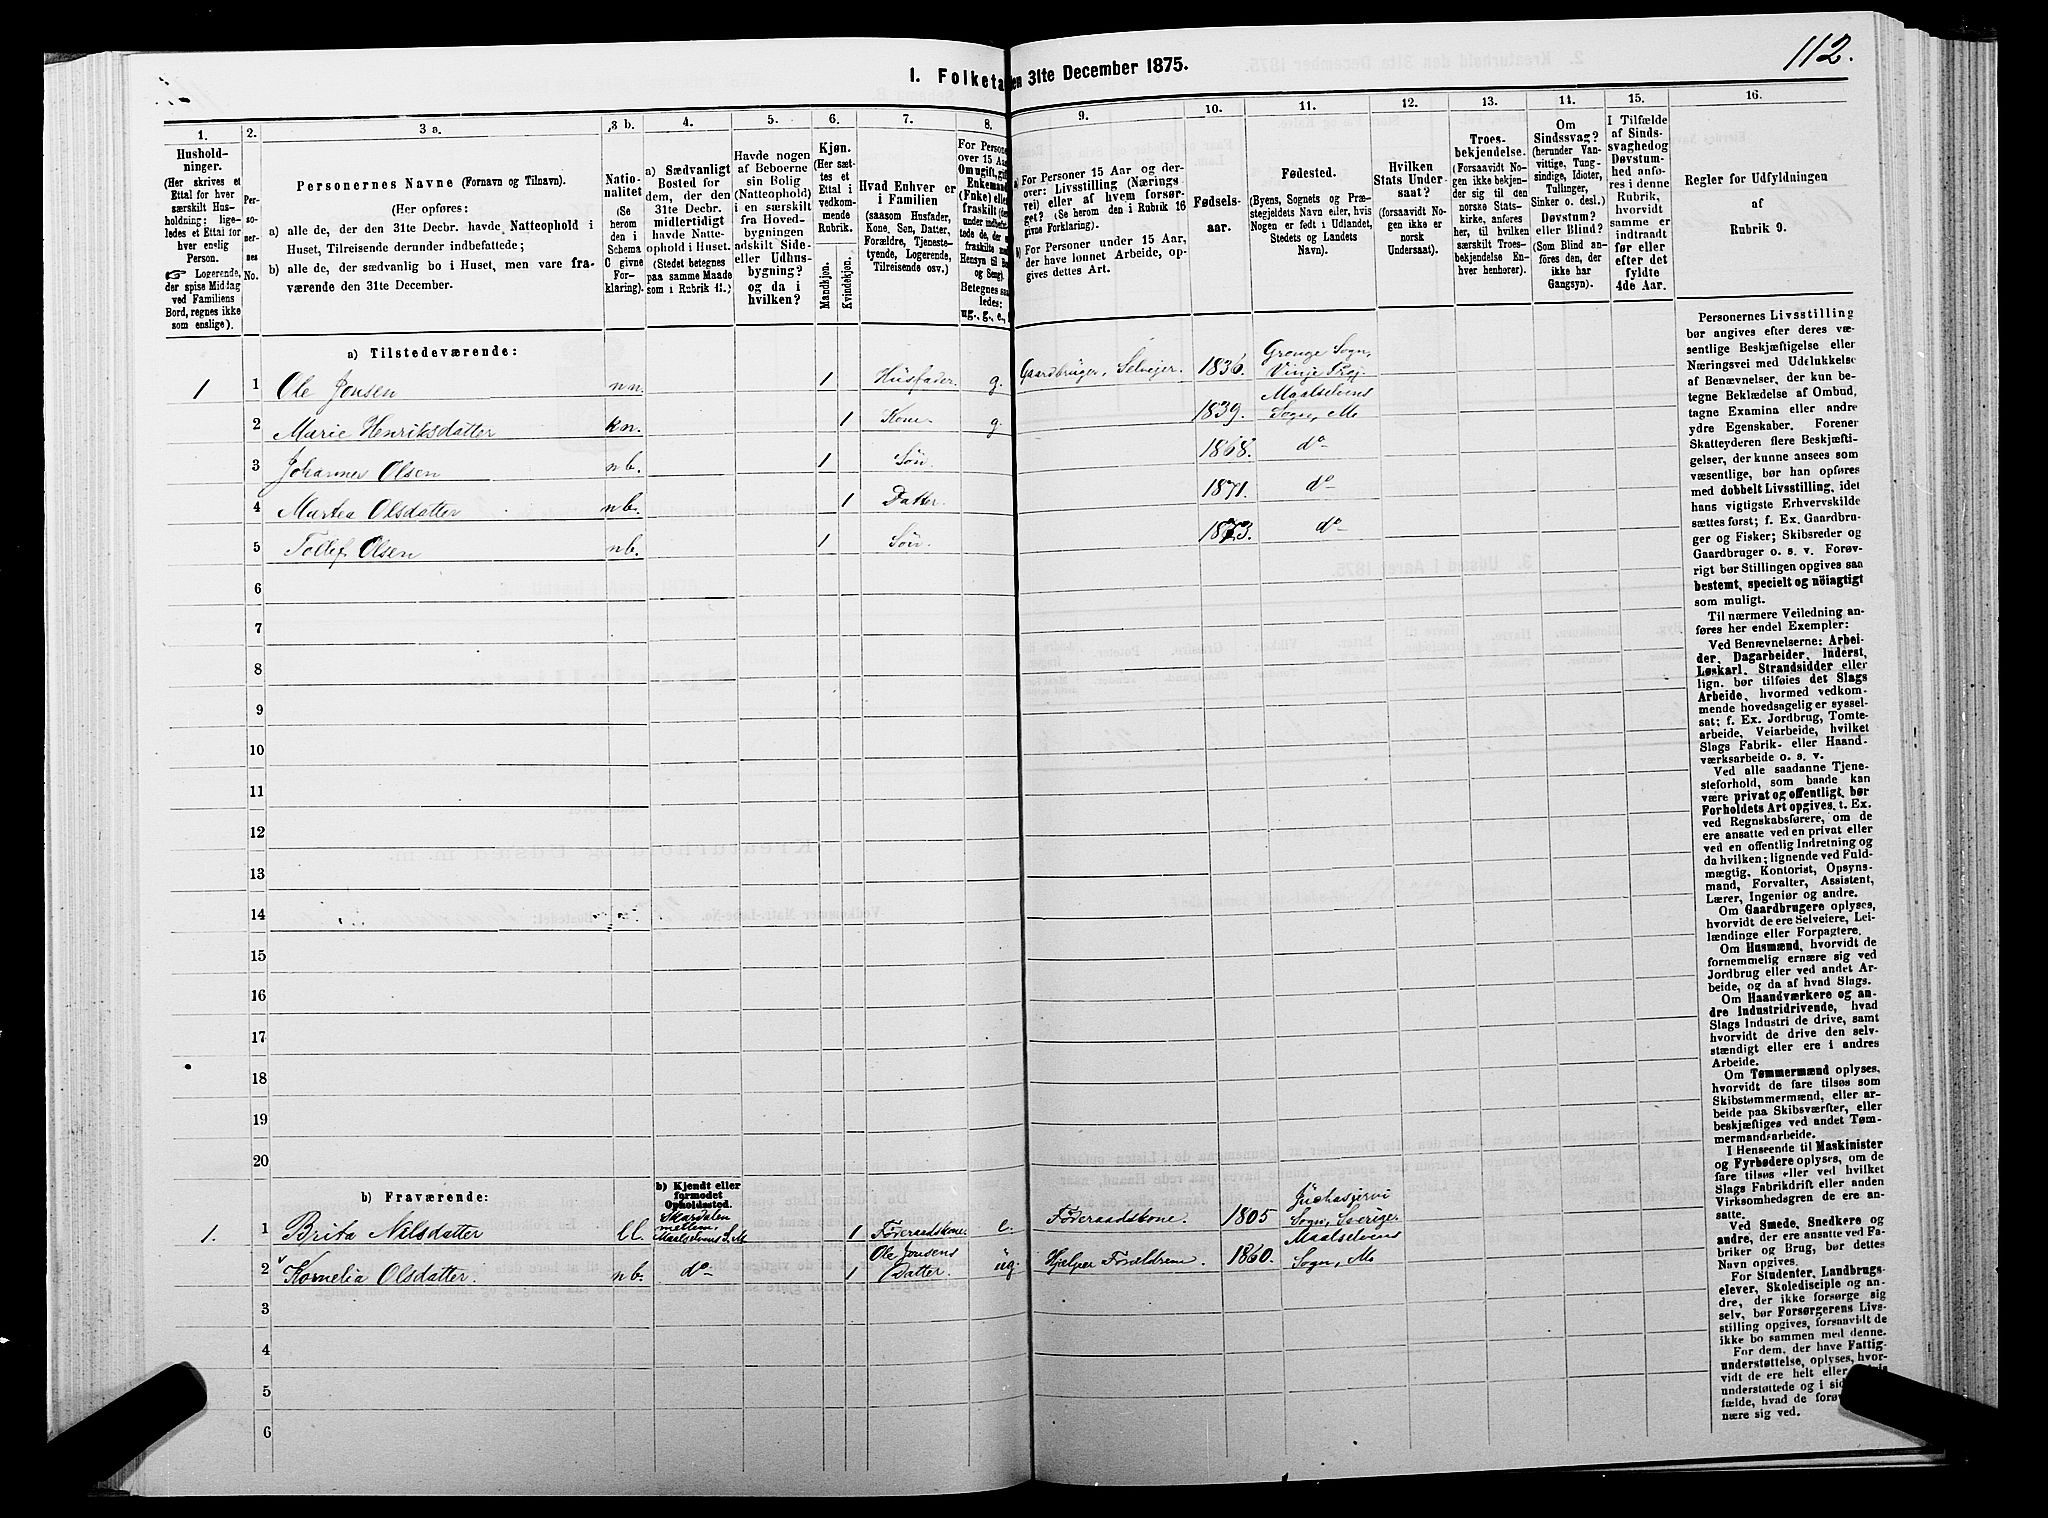 112.
I. Folketa en 31te December 1875.
1.
2.
3 a.
3 b.
4.
5.
6.
7.
8.
9.
10.
11.
12.
13.
14.
15.
16.
Hushold-
ninger.
(Her skrives et
Ettal for hver
særskilt Hus-
holdning; lige-
ledes et Ettal for
hver enslig
Person.
☞ Logerende,
der spise Middag
ved Familiens
Bord, regnes ikke
som enslige).
Per-
so-
ner-
nes
No.
Personernes Navne (Fornavn og Tilnavn).
(Her opføres:
a) alle de, der den 31te Decbr. havde Natteophold i
Huset, Tilreisende derunder indbefattede;
b) alle de, der sædvanlig bo i Huset, men vare fra-
værende den 31te December.
Natio-
nalitet
(Se
herom
den i
Schema
C givne
For-
klaring).
a) Sædvanligt
Bosted for
dem, der den
31te Decbr.
midlertidigt
havde Natte-
ophold i Huset.
(Stedet betegnes
paa samme Maade
som i Rubrik 11.)
Havde nogen
af Beboerne
sin Bolig
(Natteophold)
i en særskilt
fra Hoved-
bygningen
adskilt Side-
eller Udhus-
bygning?
og da i
hvilken?
Kjøn.
(Her sæt-
tes et
Ettal i
vedkom-
mende
Rubrik.
Mandkjøn.
Kvindekjøn.
Hvad Enhver er
i Familien
(saasom Husfader,
Kone, Søn, Datter,
Forældre, Tjeneste-
tyende, Logerende,
Tilreisende osv.)
For Persone
over 15 Aar
Om ugift, gift,
Enkemand
(Enke) eller
fraskilt (der-
under indbefat-
tede de, der
fraskilte med
Hensyn til Bo
og Seng).
Betegnes saa-
ledes:
ug., g., e.,
a) For Personer 15 Aar og der-
over: Livsstilling (Nærings
vei) eller af hvem forsør-
get? (Se herom den i Rubrik 16
givne Forklaring).
b) For Personer under 15 Aar,
der have lønnet Arbeide, op-
gives dettes Art.
Fødsels-
aar.
Fødested.
(Byens, Sognets og Præ-
stegjeldets Navn eller, hvis
Nogen er født i Udlandet,
Stedets og Landets
Navn).
Hvilken
Stats Under-
saat?
(forsaavidt No-
gen ikke er
norsk
Undersaat).
Troes-
bekjendelse.
(Forsaavidt No-
gen ikke bekjen-
der sig til den
norske Stats-
kirke, anføres
her, til hvilken
særskilt Troes-
bekjendelse En-
hver henhører).
Om
Sindssvag?
(herunder Van-
vittige, Tung-
sindige, Idioter,
Tullinger,
Sinker o. desl.)
Døvstum?
eller Blind?
(Som Blind an-
føres den, der
ikke har
Gangsyn).
I Tilfælde
af Sinds-
svaghed og
Døvstum-
hed anfø-
res i denne
Rubrik,
hvorvidt
samme er
indtraadt
før eller
efter det
fyldte
4de Aar.
Regler for Udfyldningen
af
Rubrik 9.
a) Tilstedeværende:
1 1 Ole Jonsen nn. 1 Husfader. g. Gaardbruger, Selveier. 1836. Grouge Sogn, Vinje Prgj
2 Marie Henriksdatter kn. 1 Kone. g. 1839. Maalselvens Sogn, Mo
3 Johannes Olsen nb. 1 Søn. 1868. do
4 Martea Olsdatter nb. 1 Datter. 1871. do
5 Tollef Olsen nb. 1 Søn. 1873. do
6
7
8
9
10
11
12
13
14
15
16
17
18
19
20
b) Fraværende:
b) Kjendt eller
formodet
Opholdssted.
1. 1 Brita Nilsdatter ll. Skardalen mellem, Maalselvens S. M 1 Føderaadskone. e. Føderaadskone. 1805 Juchasjervi Sogn, Sverige
2 Kornelia Olsdatter. nb. do 1 Ole Jonsens Datter. ug. Hjælper Forældrene. 1860. Maalselvens Sogn, Mo
3
4
5
6
Personernes Livsstilling
bør angives efter deres væ-
sentlige Beskjæftigelse eller
Næringsvei med Udelukkelse
af Benævnelser, der kun be-
tegne Beklædelse af Ombud,
tagne Examina eller andre
ydre Egenskaber. Forener
Skatteyderen flere Beskjæfti-
gelser, der kunne ansees som
væsentlige, bør han opføres
med dobbelt Livsstilling, idet
hans vigtigste Erhvervskilde
sættes først; f. Ex. Gaardbru-
ger og Fisker; Skibsreder og
Gaardbruger o. s. v. Forøv-
rigt bør Stillingen opgives saa
bestemt, specielt og nöiagtigt
som muligt.
Til nærmere Veiledning an-
føres her endel Exempler:
Ved Benævnelserne: Arbei-
der, Dagarbeider, Inderst,
Løskarl, Strandsidder eller
lign. bør tilføies det Slags
Arbeide, hvormed vedkom-
mende hovedsagelig er syssel-
sat; f. Ex. Jordbrug, Tomte-
arbeide, Veiarbeide, hvilket
Slags Fabrik- eller Haand-
værksarbeide o. s. v.
Ved alle saadanne Tjene-
steforhold, som baade kan
være privat og offentligt, bør
Forholdets Art opgives, t. Ex.
ved Regnskabsførere, om de
ere ansatte ved en privat eller
ved en offentlig Indretning og
da hvilken; lignende ved Fuld-
mægtig, Kontorist, Opsyns-
mand, Forvalter, Assistent,
Lærer, Ingeniør og andre.
Om Gaardbrugere oplyses,
hvorvidt de ere Selveiere, Lei-
lændinge eller Forpagtere.
Om Husmænd, hvorvidt de
fornemmelig ernære sig ved
Jordbrug eller ved andet Ar-
beide, og da af hvad Slags.
Om Haandværkere og an-
dre Industridrivende, hvad
Slags Industri de drive, samt
hvorvidt de drive den selv-
stændigt eller ere i andres
Arbeide.
Om Tømmermænd oplyses,
hvorvidt de fare tilsøs som
Skibstømmermænd, eller ar-
beide paa Skibsværfter, eller
beskjæftiges ved andet Tøm-
mermandsarbeide.
I Henseende til Maskinister
og Fyrbødere oplyses, om de
fare tilsøs eller ved hvilket
Slags Fabrikdrift eller anden
Virksomhedsgren de ere an-
satte.
Ved Smede, Snedkere og
andre, der ere ansatte ved Fa-
briker og Brug, bør dettes
Navn opgives.
For Studenter, Landbrugs-
elever, Skoledisciple og an-
dre, der ikke forsørge sig
selv, bør Forsørgerens Livs-
stilling opgives, forsaavidt de
ikke bo sammen med denne.
For dem, der have Fattig-
understøttelse, oplyses, hvor-
vidt de ere helt eller
understøttede og i sid
fælde, hvad de forøv
nære sig ved.